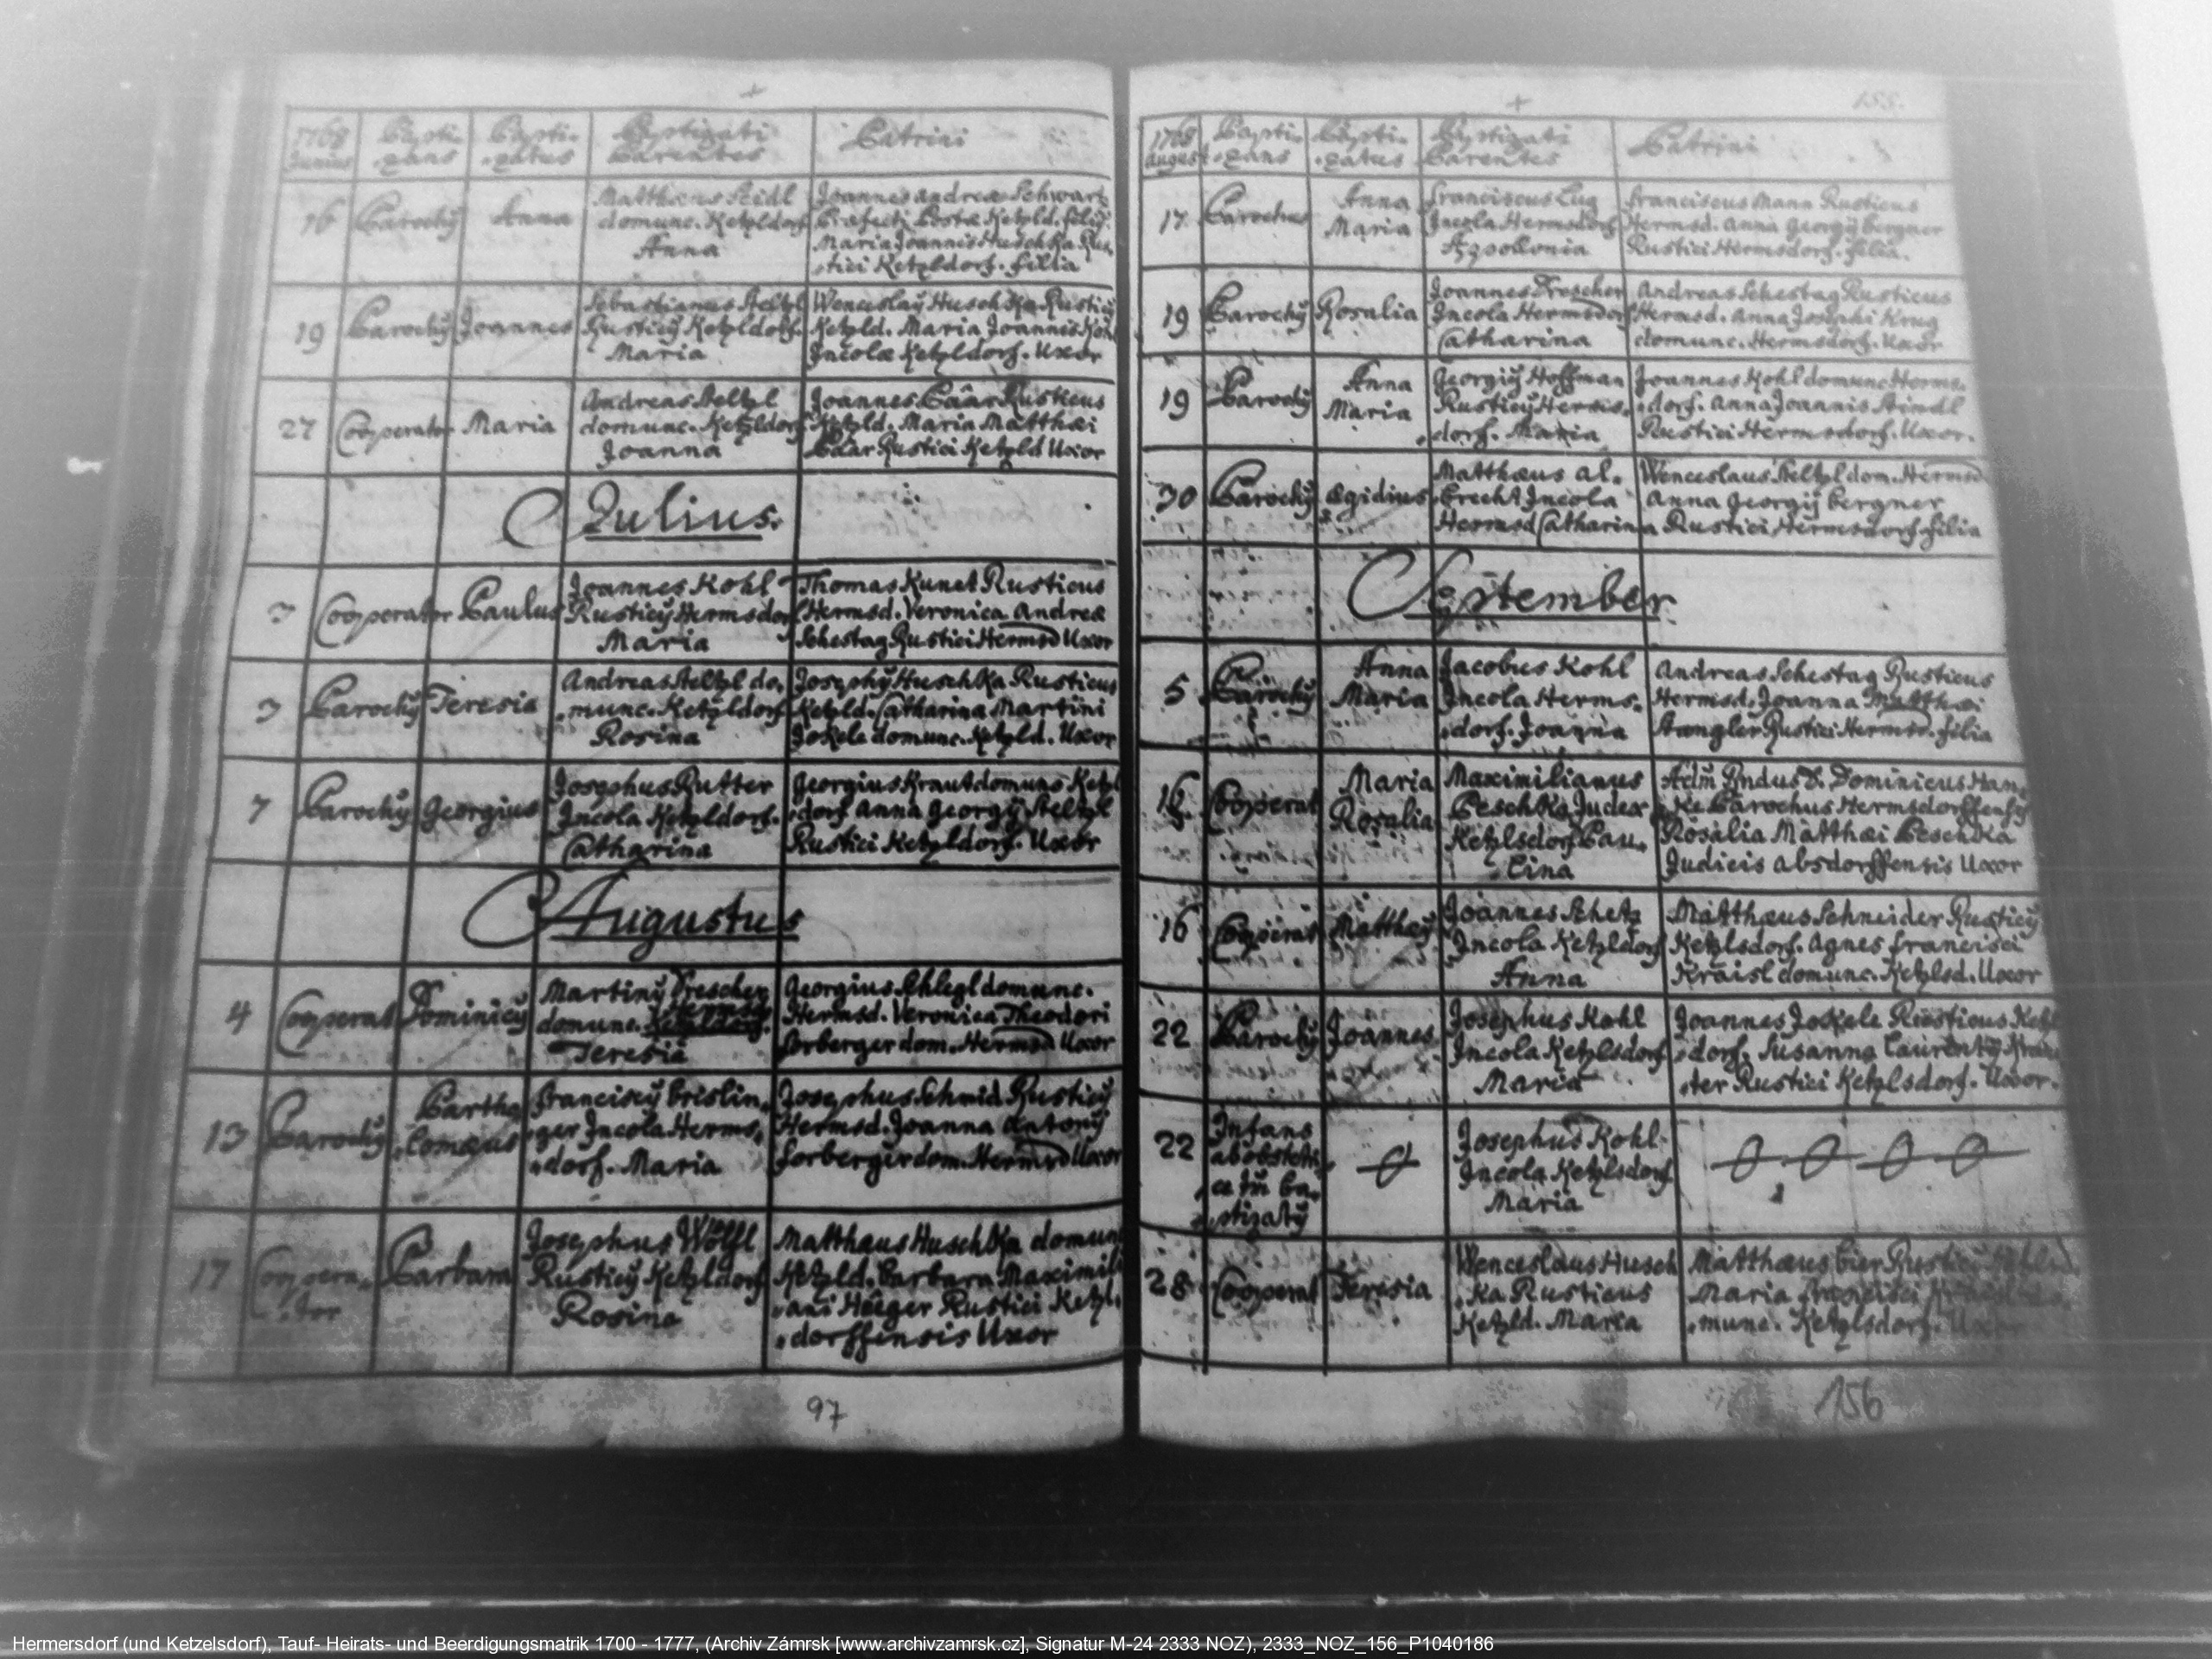 1768 Junius
Baptizans
Baptizatus
Baptizati Parentes
Patrini
16
Parochỹ
Anna
Matthæus Seidl
domunc. Ketzldorf
Anna
Joannes Andreæ Schwartz
Præfecti Postæ Ketzld. filiỹ
Maria Joannis Huschka Rus,
,tici Ketzldorf. filia
19
Parochỹ
Joannes
Sebastianus Steltzl
Rusticỹ Ketzldorf.
Maria
Wenceslaỹ Huschka Rusticỹ
Ketzld. Maria Joannis Kohl
Incolæ Ketzldorf. Uxor
27
Cooperator
Maria
Andreas Steltzl
domunc. Ketzldorf
Joanna
Joannes Päar Rusticus
Ketzld. Maria Matthæi
Päar Rustici Ketzld Uxor
Julius.
3
Cooperator
Paulus
Joannes Kohl
Rusticỹ Hermsdorf
Maria
Thomas Kunet Rusticus
Hermsd. Veronica Andreæ
Schestag Rustici Hermsd Uxor
3
Parochỹ
Teresia
Andreas Steltzl do,
,munc. Ketzldorf
Rosina
Josephỹ Huschka Rusticus
Ketzld. Catharina Martini
Jokele domunc. Ketzld. Uxor
7
Parochỹ
Georgius
Josephus Rutter
Incola Ketzldorf.
Catharina
Georgius Kraut domunc Ketzl
,dorf Anna Georgỹ Steltzl
Rustici Ketzldorf. Uxor
Augustus
4
Cooperat
Dominicỹ
Martinỹ Trescher
Hermsd
domunc. Ketzldorf.
Teresia
Georgius Schlegl domunc.
Hermsd. Veronica Theodori
Forberger dom. Hermsd Uxor
13
Parochỹ
Bartho
,lomæus
Franciscỹ Brislin,
,ger Incola Herms,
,dorf. Maria
Josephus Schmid Rusticỹ
Hermsd. Joanna Antonỹ
Forberger dom. Hermsd Uxor
17
Coopera,
,tor
Barbara
Josephus Wölfl
Rusticỹ Ketzldorf
Rosina
Matthæus Huschka domunc
Ketzld. Barbara Maximili
,ani Heeger Rustici Ketzl,
,dorffensis Uxor
97
155.
1768 August
Baptizans
Baptizatus
Baptizati Parentes
Patrini
17
Parochus
Anna
Maria
Franciscus Lug
Incola Hermsdorf
Appollonia
Franciscus Mann Rusticus
Hermsd. Anna Georgỹ Bergner
Rustici Hermsdorf. filia.
19
Parochỹ
Rosalia
Joannes Trescher
Incola Hermsdorf
Catharina
Andreas Schestag Rusticus
Hermsd. Anna Josephi Krug
domunc. Hermsdorf. Uxor
19
Parochỹ
Anna
Maria
Georgiỹ Hoffman
Rusticỹ Herms,
,dorf. Maria
Joannes Kohl domunc Herms,
,dorf. Anna Joannis Stindl
Rustici Hermsdorf. Uxor.
30
Parochỹ
Ægidius
Matthæus Al,
brecht Incola
Hermsd Catharina
Wenceslaus Steltzl dom. Hermsd
Anna Georgỹ Bergner
Rustici Hermsdorf filia
September
5
Parochỹ
Anna
Maria
Jacobus Kohl
Incola Herms,
,dorf. Joanna
Andreas Schestag Rusticus
Hermsd. Joanna Matthæi
Stangler Rustici Hermsd. filia
Cooperat
Maria
Rosalia
Maximilianus
Peschka Judex
Ketzlsdorf Pau,
lina
Adm̃ Rndus D. Dominicus Han,
,ke Parochus Hermsdorffensỹ
Rosalia Matthæi Peschka
Judicis Absdorffensis Uxor
16
Cooperat
Matthæỹ
Joannes Schetz
Incola Ketzldorf
Anna
Matthæus Schneider Rusticỹ
Ketzlsdorf. Agnes Francisci
Kraisl domunc. Ketzlsd. Uxor
22
Parochỹ
Joannes
Josephus Kohl
Incola Ketzlsdorf
Maria
Joannes Jokele Rusticus Ketzl
,dorf. Susanna Laurentỹ
,ter Rustici Ketzlsdorf. Uxor.
22
Infans
ab obsteti,
,ce ba,
,ptizatỹ
Josephus Kohl
Incola Ketzlsdorf
Maria
28
Cooperat
Teresia
Wenceslaus Husch
,ka Rusticus
Ketzld. Maria
Matthæus Bier Rusticỹ
Maria Francisci
,munc. Ketzlsdorf. Uxor
156
Hermersdorf (und Ketzelsdorf), Tauf- Heirats- und Beerdigungsmatrik 1700 - 1777, (Archiv Zámrsk [www.archivzamrsk.cz], Signatur M-24 2333 NOZ), 2333_NOZ_156_P1040186